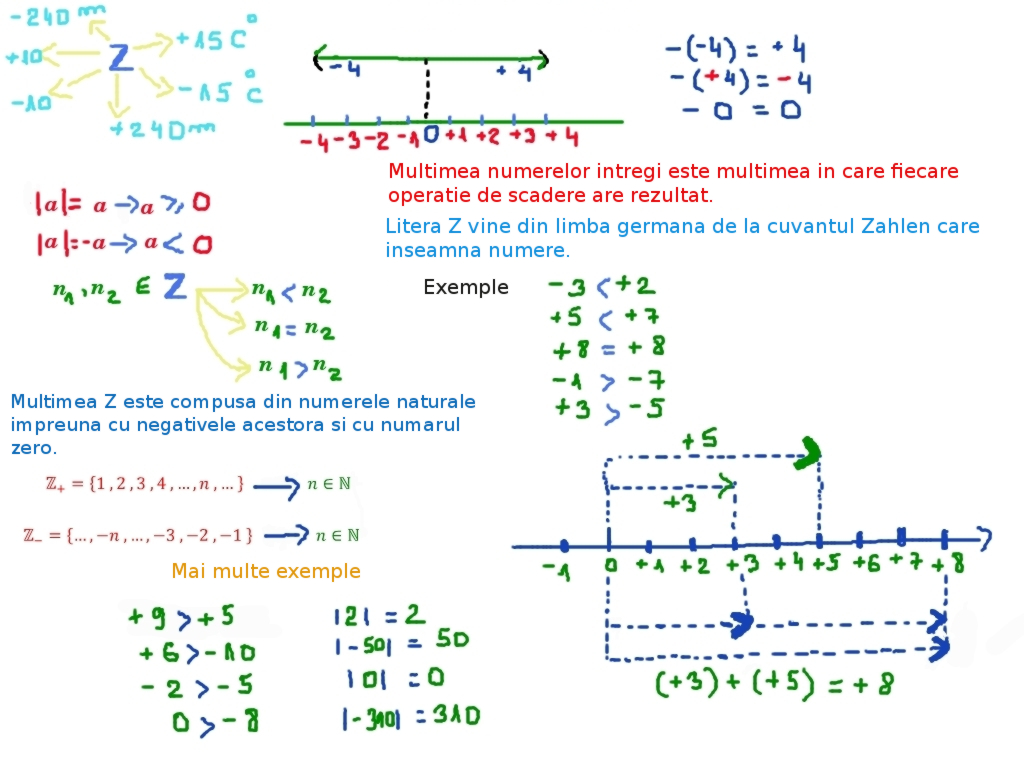 -240 m
+10
Z
+15 C°
-10
-15 C°
+240m
-4 +4
-4 -3 -2 -1 0 +1 +2 +3 +4
-(-4) = +4
-(+4) = -4
- 0 = 0
Multimea numerelor intregi este multimea in care fiecare
operatie de scadere are rezultat.
Litera Z vine din limba germana de la cuvantul Zahlen care
inseamna numere.
|a|= a → a ⩾ 0
|a|=-a → a < 0
n₁, n₂ ∈ Z
n₁ < n₂
n₁ = n₂
n₁ > n₂
Exemple
-3 < +2
+5 < +7
+8 = +8
-1 > -7
+3 > -5
Multimea Z este compusa din numerele naturale
impreuna cu negativele acestora si cu numarul
zero.
ℤ₊ = {1, 2, 3, 4, …, n, …} → n ∈ ℕ
ℤ₋ = {…, −n, …, −3, −2, −1} → n ∈ ℕ
Mai multe exemple
+9 > +5
+6 > -10
-2 > -5
0 > -8
|2| = 2
|-50| = 50
|0| = 0
|-310| = 310
+5
+3
-1 0 +1 +2 +3 +4 +5 +6 +7 +8
(+3) + (+5) = +8